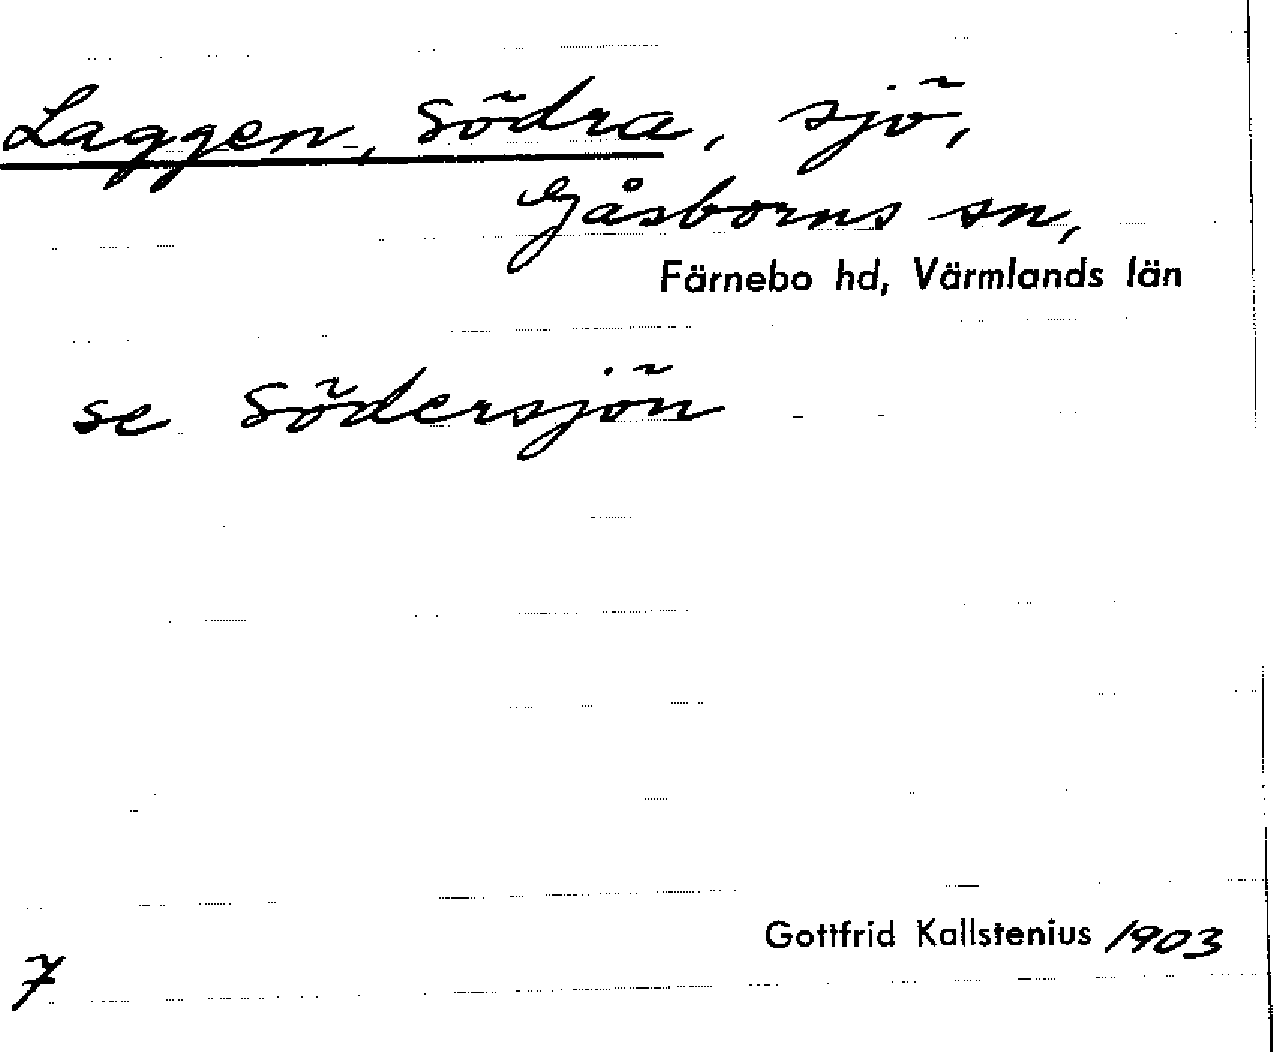 Laggen, Södra, sjö,
Gåsborns sn,
Färnebo hd, Värmlands län
se Södersjön
Gottfrid Kallstenius 1903
7